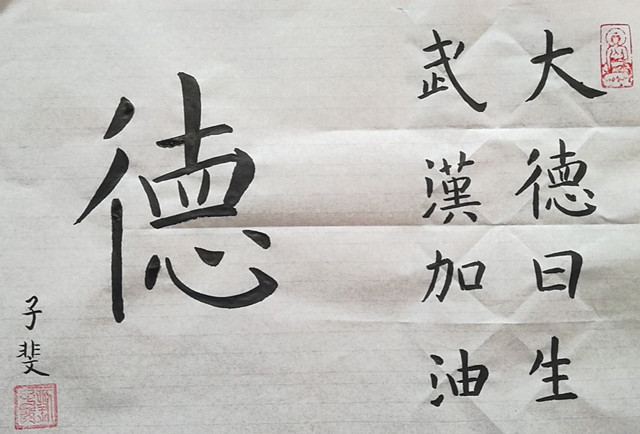 大德曰生
武漢加油
德
子斐